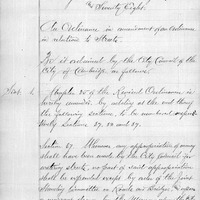 & Seventy Eight.
An Ordinance in amendment of an ordinance
in relation to Streets.
Be it ordained by the City Council of the
City of Cambridge, as follows.
Sect. 1. Chapter 35 of the Revised Ordinances is
hereby amended, by adding at the end thereof
the following sections, to be numbered respect-
ively Sections 57, 58 and 59.
Section 57. Whenever any appropriation of money
shall have been made by the City Council for
watering streets, no part of said appropriation
shall be expended except by order of the Joint
Standing Committee on Roads and Bridges